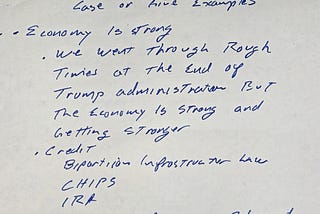 Case or Five Examples
• Economy Is strong
• We Went Through Rough
Times at The End of
Trump administration But
The Economy Is Strong and
Getting Stronger
• Credit
Bipartisan Infrastructure Law
CHIPS
IRA